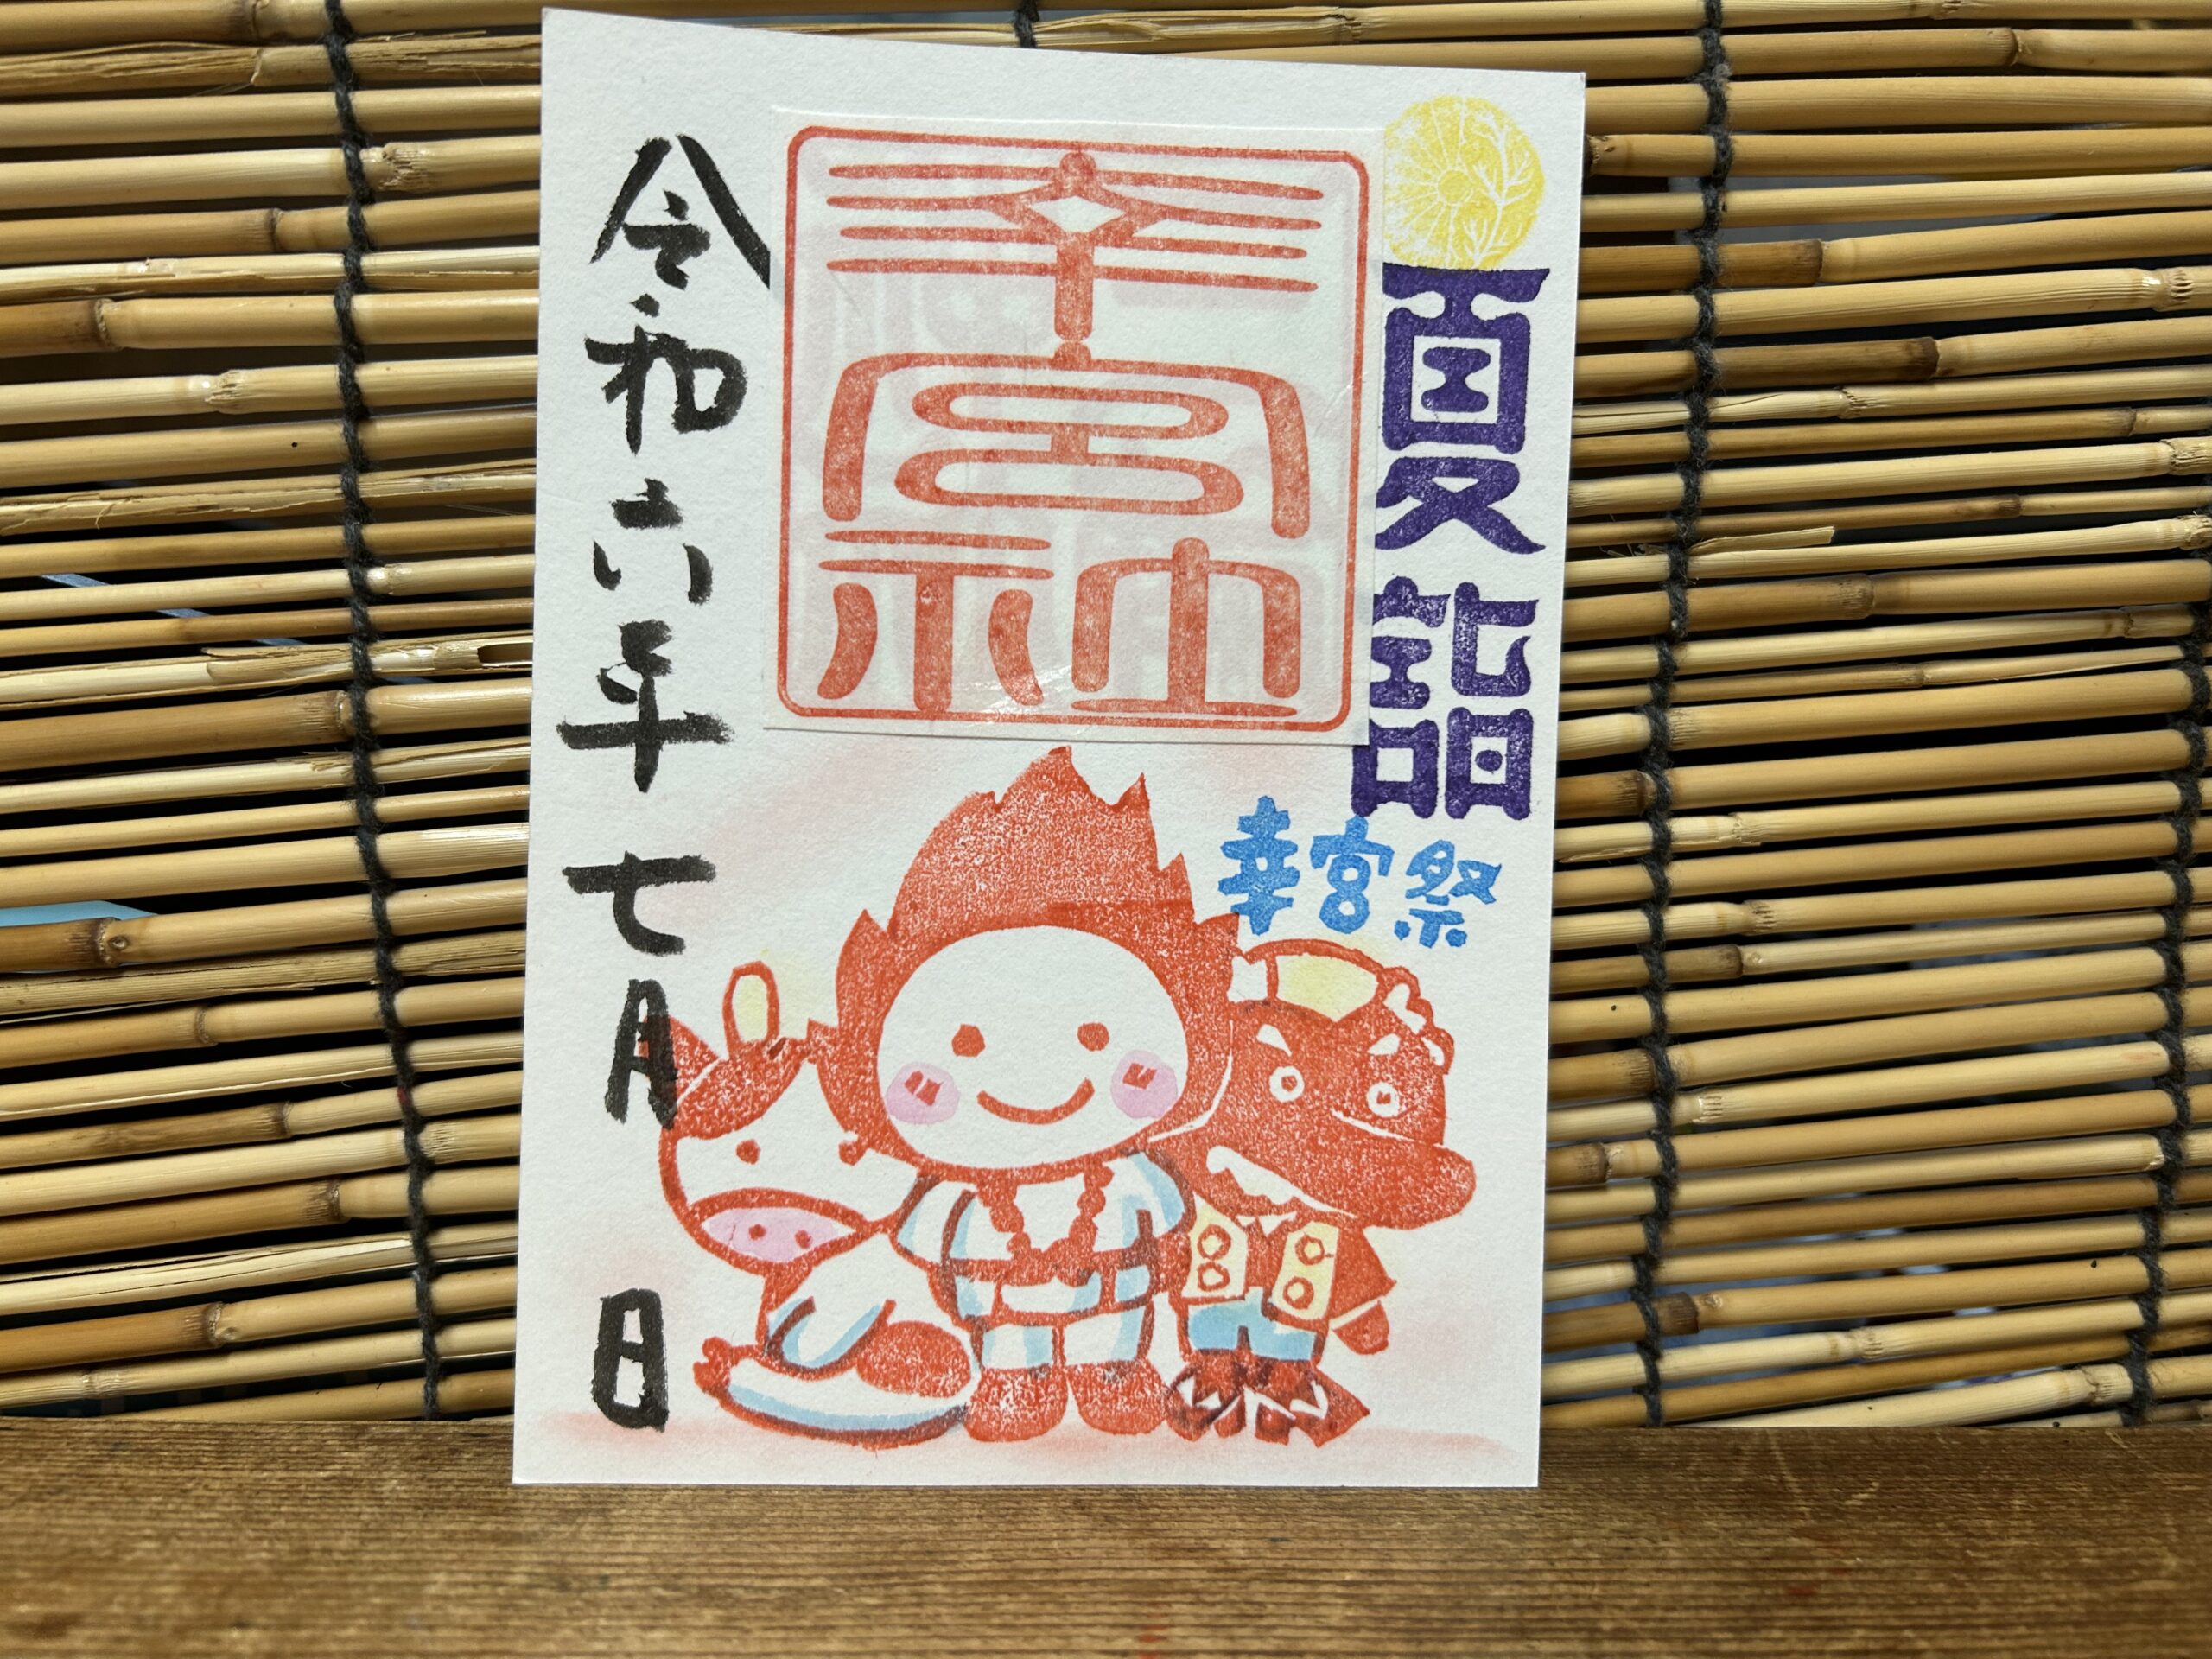 夏詣
幸宮祭
幸宮神社
令和六年七月 日